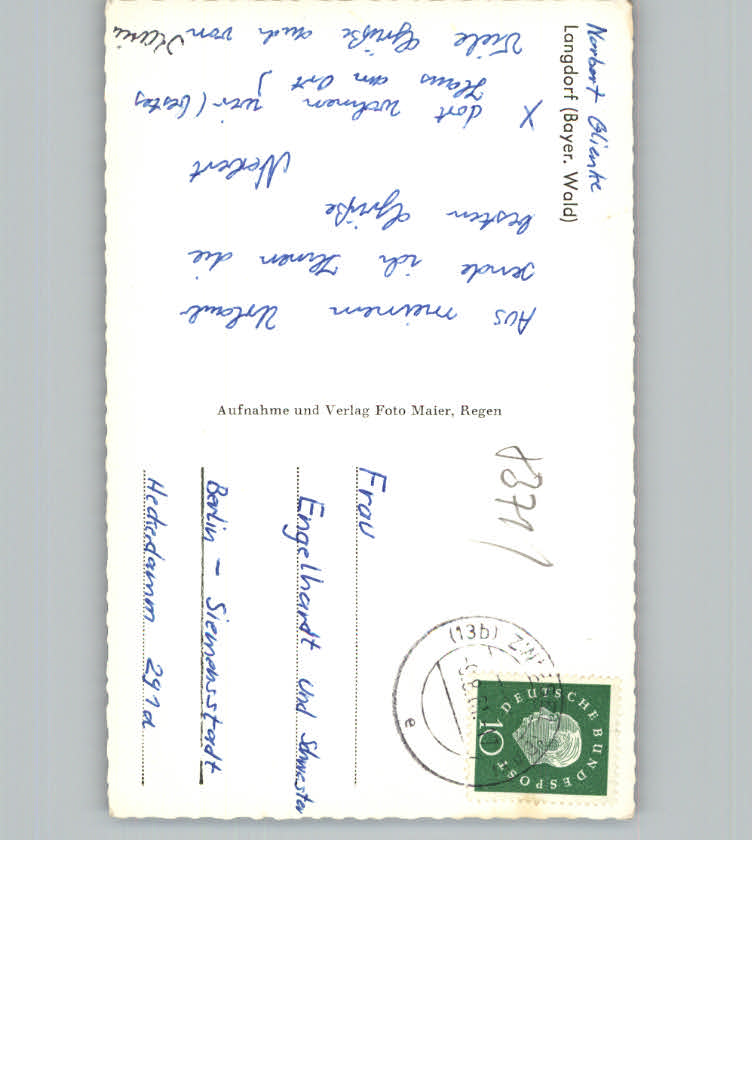 Norbert Glienke
Langdorf (Bayer. Wald)
Aus meinem Urlaub
sende ich Ihnen die
besten Grüße
Norbert
X dort wohnen wir (bestes
Haus am Ort)
Viele Grüße auch von
Aufnahme und Verlag Foto Maier, Regen
8371
Frau
Engelhardt und Schwester
Berlin - Siemensstadt
Heckerdamm 291d
(13b)
e
DEUTSCHE BUNDESPOST
10